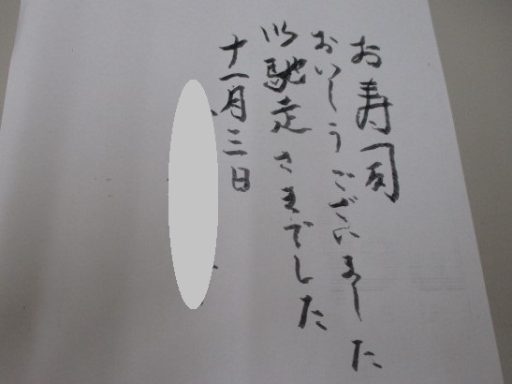 お寿司
おいしうございました
御馳走さまでした
十一月三日